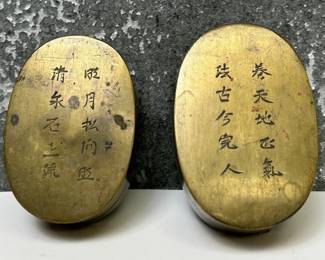 明月松間照
清泉石上流
養天地正氣
法古今完人